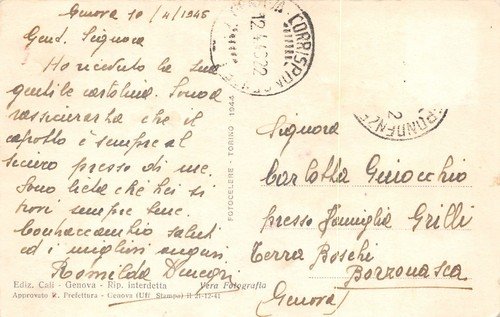 Genova 10/4/1946
Gent. Signora
Ho ricevuto la sua
gentile cartolina. Sono a
rassicurarla che il
cappotto è sempre al
sicuro presso di me.
Sono lieta che Lei si
trovi sempre bene.
Contraccambio saluti
ed i migliori auguri
Romilda
Ediz. Cali - Genova - Rip. interdetta Vera Fotografia
Approvato R. Prefettura - Genova (Uff. Stampa) il 21-12-41
FOTOCELERE - TORINO 1944
CORRISP
12.4
Signora
Carlotta Ginocchio
presso famiglia Grilli
Terra Boschi
Borzonasca
(Genova)